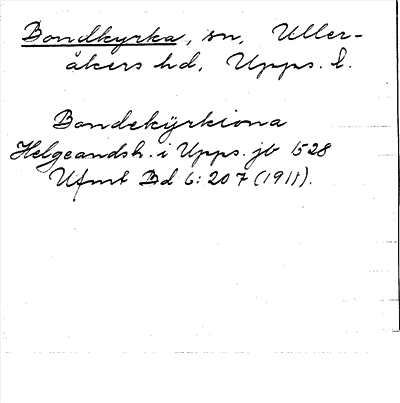 Bondkyrka, sn, Uller-
åkers hd, Upps. l.
Bondekÿrkiona
Helgeandsh. i Upps. jb 1528
Ufmt Bd 6: 207 (1911).